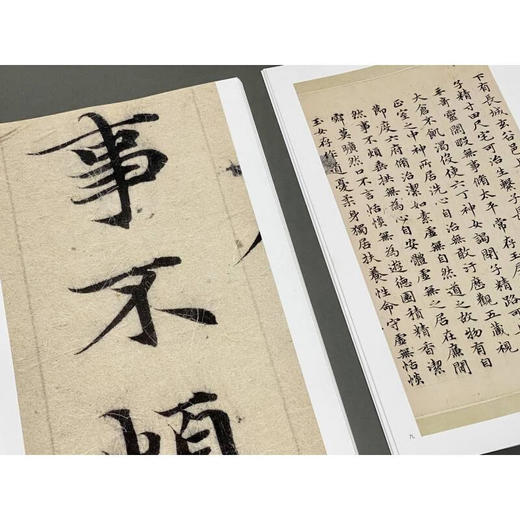 事不煩
下有長城玄谷邑
子精寸田尺宅可治生繫子長
奇靈閑暇無事脩太平常存玉房
大倉不飢渴役使六丁神女謁閉子精路可
正室之中神所居洗心自治無敢汙歷觀五藏視
節度六府脩治潔如素虛無自然道之故物有自
然事不煩垂拱無為心自安體虛無之居在廉間
寂莫曠然口不言恬惔無為遊德園積精香潔
玉女存作道憂柔身獨居扶養性命守虛無恬惔
九